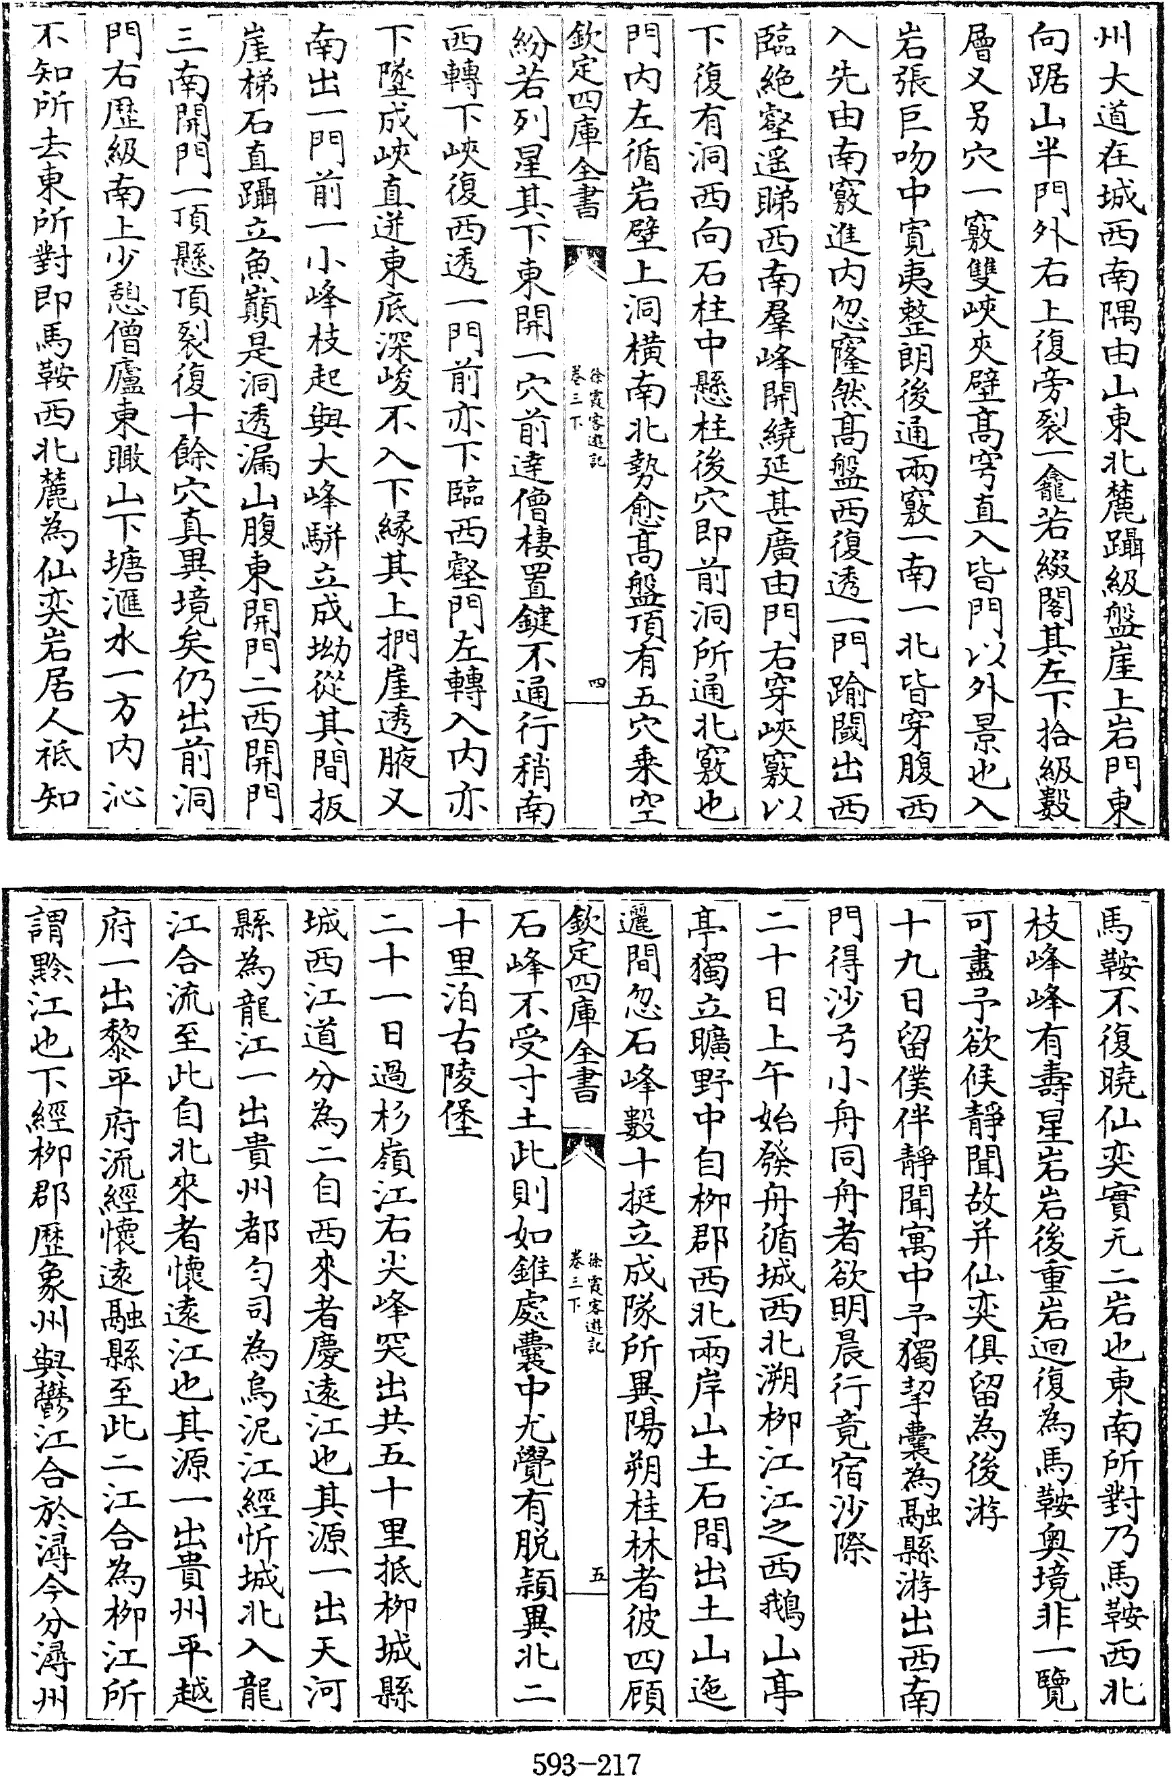 州大道在城西南隅由山東北麓躡級盤崖上岩門東
向踞山半門外右上復旁裂一龕若綴閣其左下拾級數
層又另穴一竅雙峽夾壁高穹直入皆門以外景也入
岩張巨吻中寛夷整朗後通兩竅一南一北皆穿腹西
入先由南竅進内忽窿然高盤西復透一門踰閾出西
臨絶壑遥睇西南羣峰開繞延甚廣由門右穿峽竅以
下復有洞西向石柱中懸柱後穴即前洞所通北竅也
門内左循岩壁上洞橫南北勢愈高盤頂有五穴乗空
欽定四庫全書
徐霞客遊記
卷三下
四
紛若列星其下東開一穴前達僧棲置鍵不通行稍南
西轉下峽復西透一門前亦下臨西壑門左轉入内亦
下墜成峽直迸東底深峻不入下緣其上捫崖透腋又
南出一門前一小峰枝起與大峰騈立成坳從其間扳
崖梯石直躡立魚巔是洞透漏山腹東開門二西開門
三南開門一頂懸頂裂復十餘穴真異境矣仍出前洞
門右歴級南上少憩僧廬東瞰山下塘滙水一方内沁
不知所去東所對即馬鞍西北麓為仙奕岩居人祗知
馬鞍不復曉仙奕實无二岩也東南所對乃馬鞍西北
枝峰峰有壽星岩岩後重岩迴復為馬鞍奥境非一覽
可盡予欲候靜聞故并仙奕俱留為後游
十九日留僕伴靜聞寓中予獨挈囊為融縣游出西南
門得沙弓小舟同舟者欲明晨行竟宿沙際
二十日上午始發舟循城西北溯柳江江之西鵝山亭
亭獨立曠野中自柳郡西北兩岸山土石間出土山迤
邐間忽石峰數十挺立成隊所異陽朔桂林者彼四顧
欽定四庫全書
徐霞客遊記
卷三下
五
石峰不受寸土此則如錐處囊中尤覺有脱穎異北二
十里泊古陵堡
二十一日過杉嶺江右尖峰突出共五十里抵柳城縣
城西江道分為二自西來者慶遠江也其源一出天河
縣為龍江一出貴州都勻司為烏泥江經忻城北入龍
江合流至此自北來者懷遠江也其源一出貴州平越
府一出黎平府流經懷遠融縣至此二江合為柳江所
謂黔江也下經柳郡歴象州與鬱江合於潯今分潯州
593-217